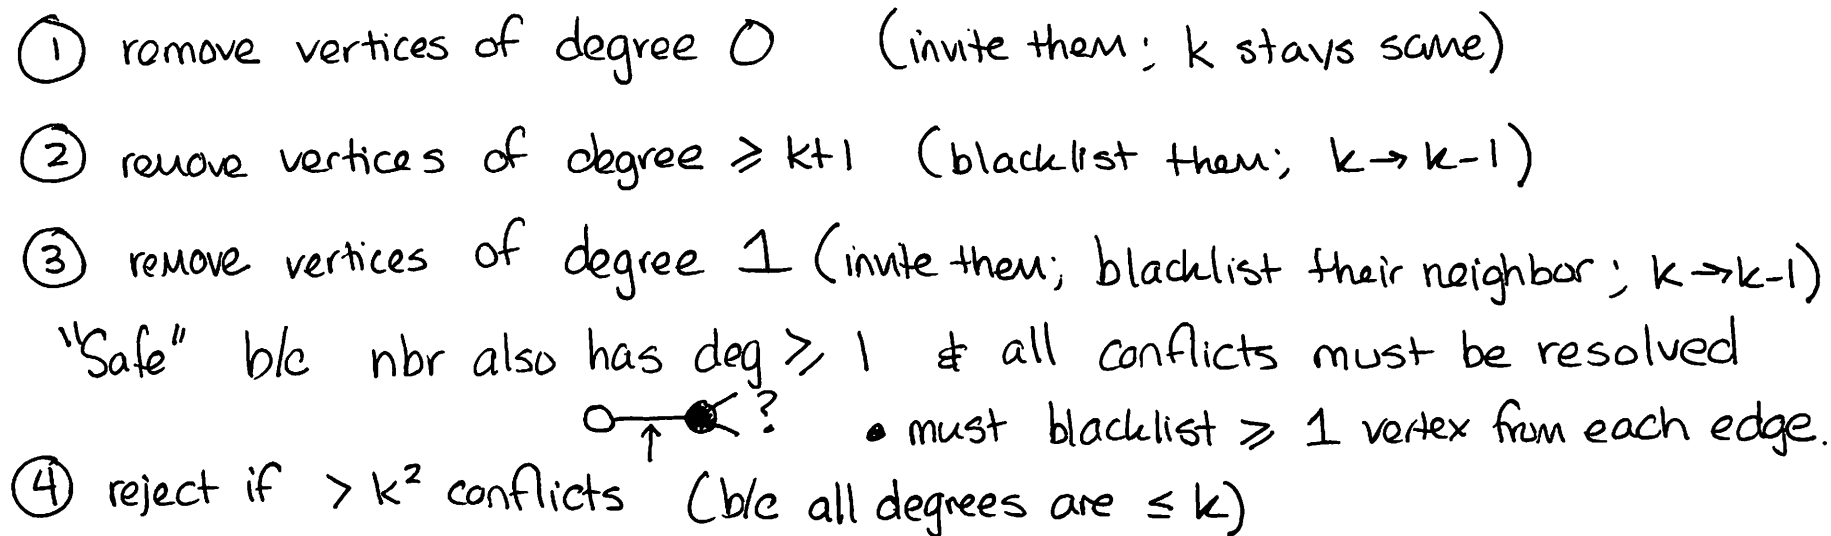 ① remove vertices of degree 0 (invite them; k stays same)
② remove vertices of degree ≥ k+1 (blacklist them; k → k-1)
③ remove vertices of degree 1 (invite them; blacklist their neighbor; k → k-1)
"Safe" b/c nbr also has deg ≥ 1 & all conflicts must be resolved
? • must blacklist ≥ 1 vertex from each edge.
④ reject if > k² conflicts (b/c all degrees are ≤ k)